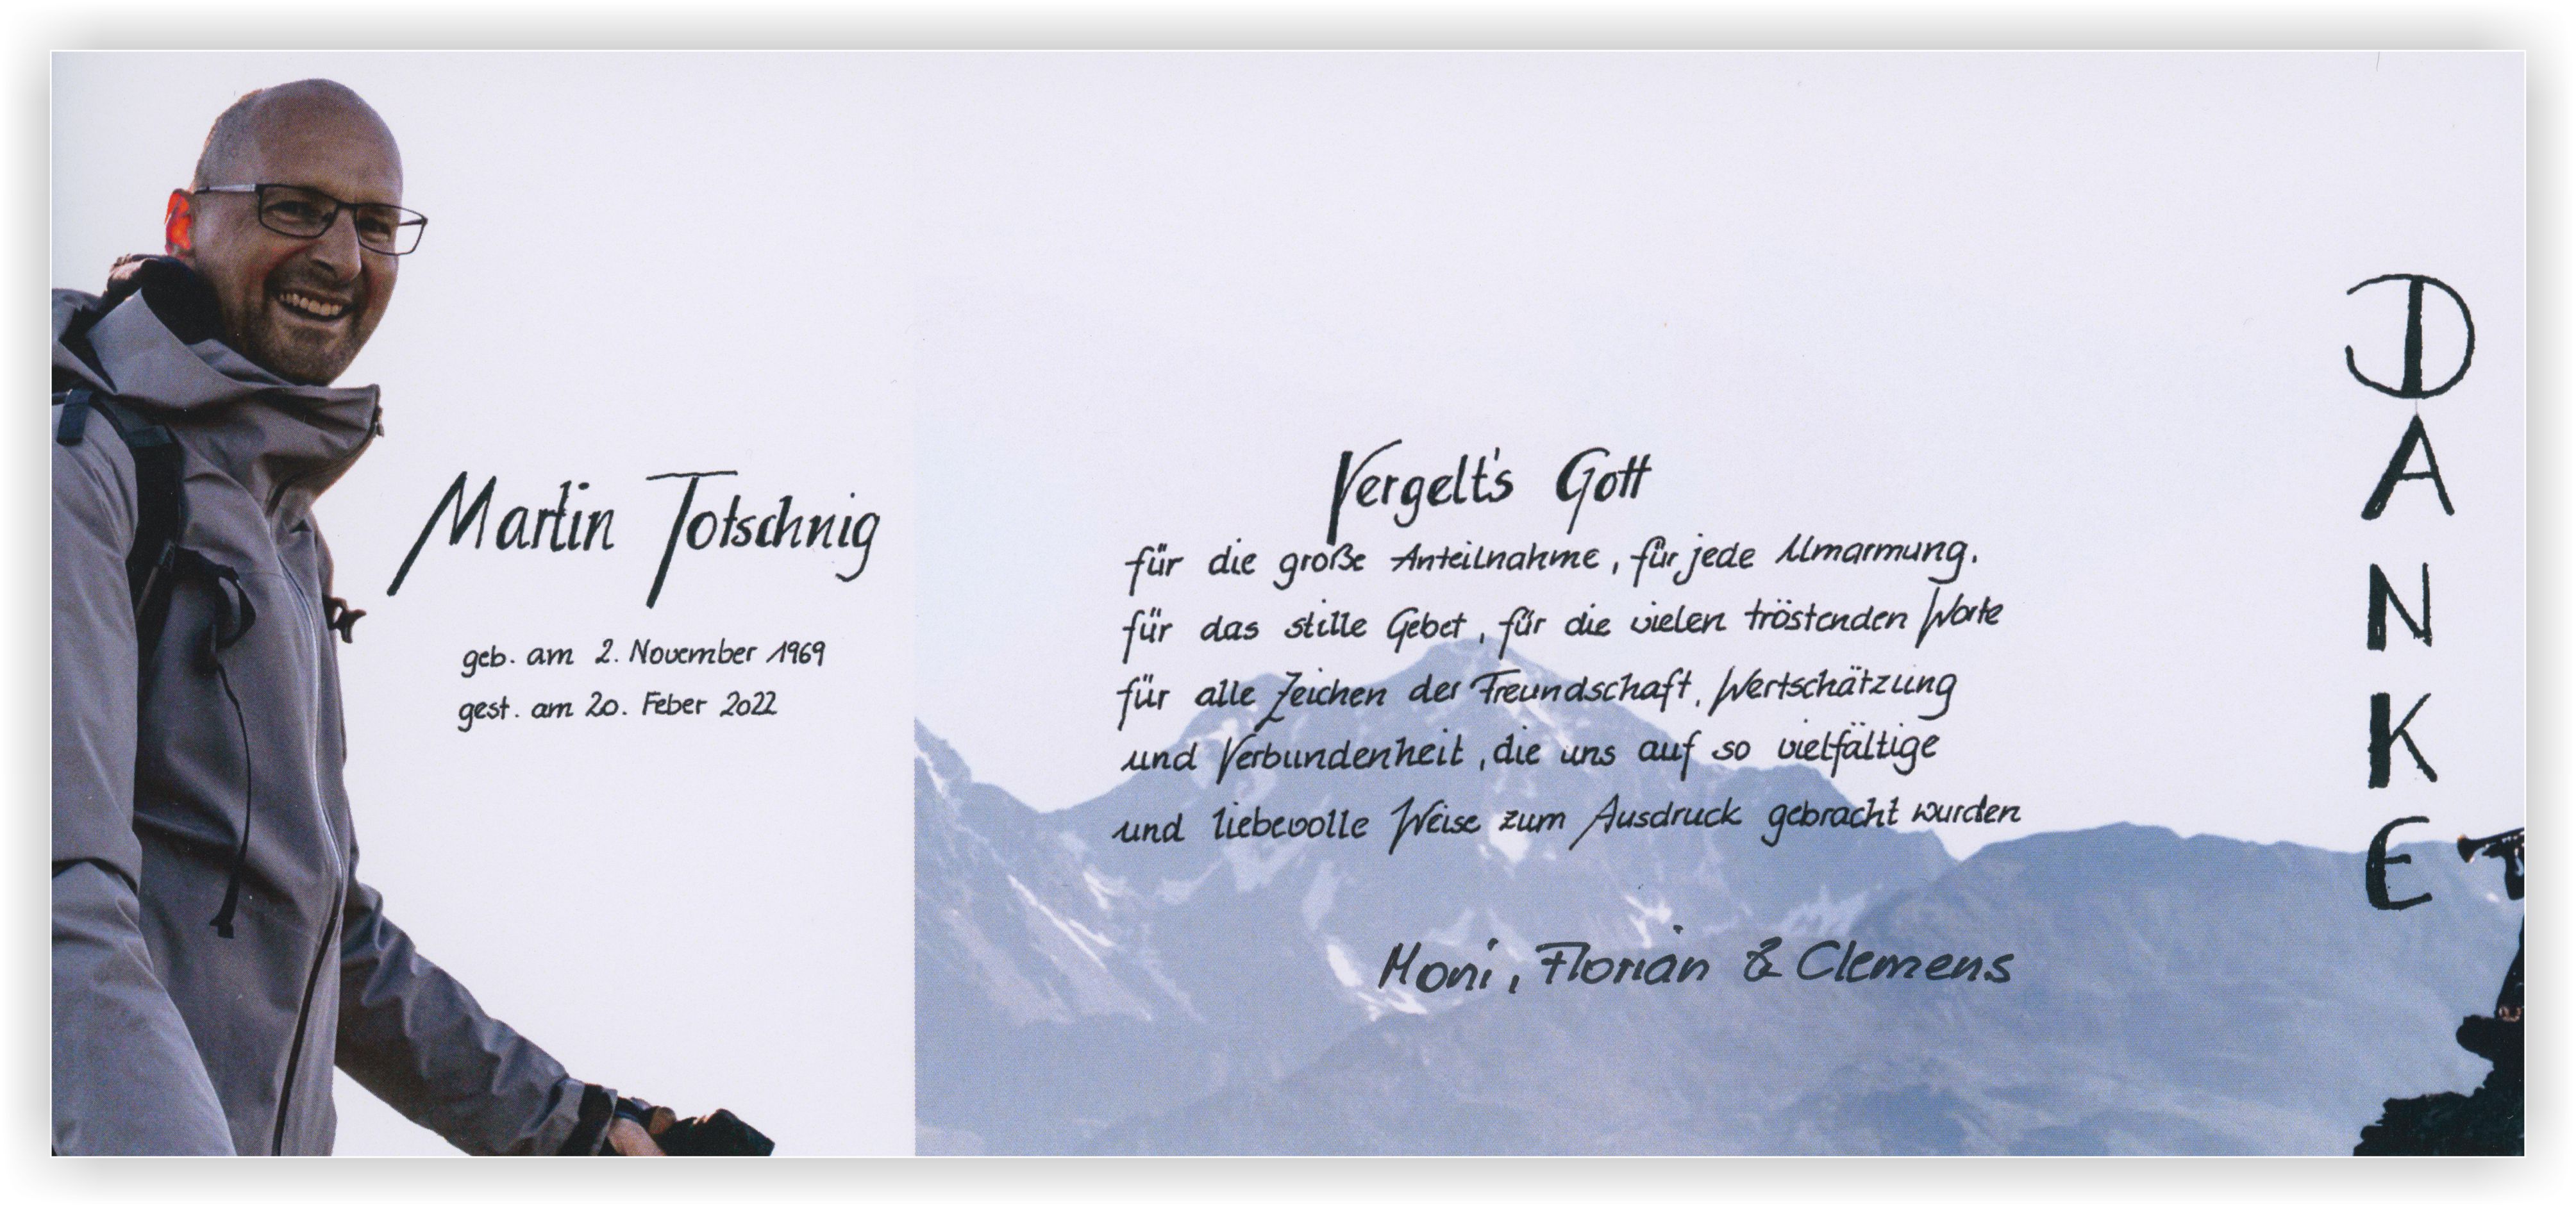 Martin Totschnig
geb. am 2. November 1969
gest. am 20. Feber 2022
Vergelt's Gott
für die große Anteilnahme, für jede Umarmung.
für das stille Gebet, für die vielen tröstenden Worte
für alle Zeichen der Freundschaft, Wertschätzung
und Verbundenheit, die uns auf so vielfältige
und liebevolle Weise zum Ausdruck gebracht wurden
Moni, Florian & Clemens
DANKE